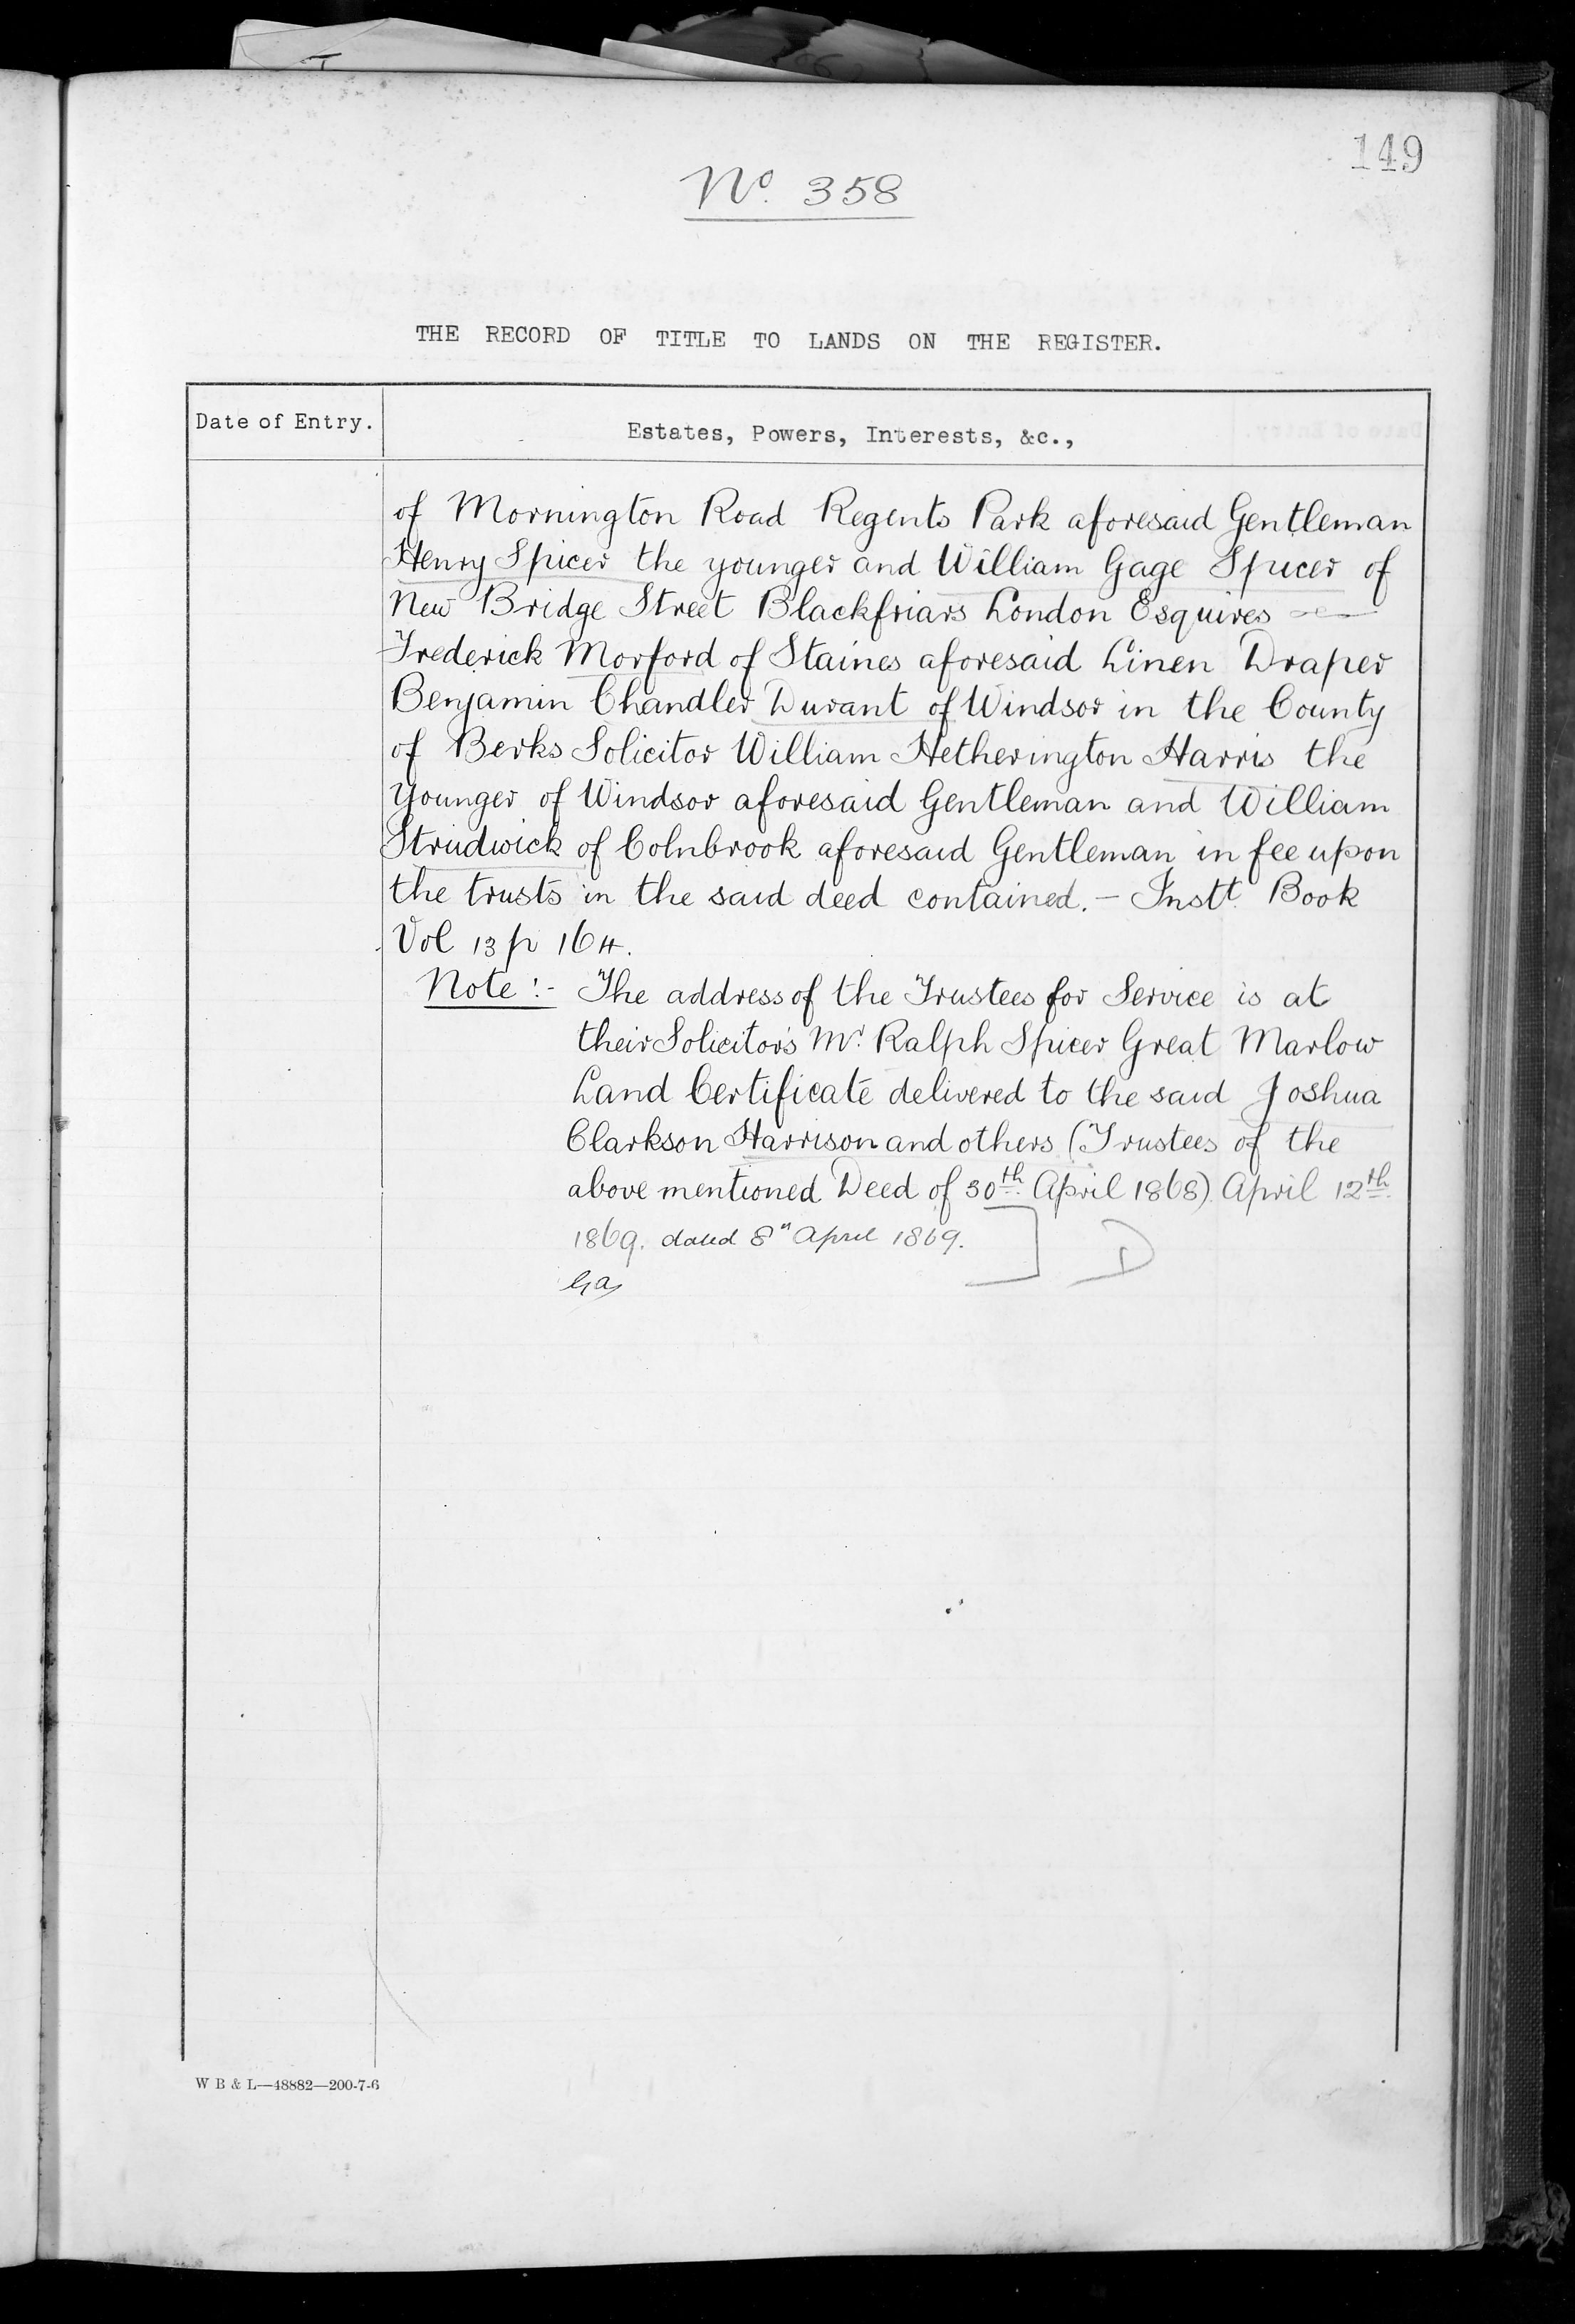 149
No. 358
THE RECORD OF TITLE TO LANDS ON THE REGISTER.
Date of Entry.
Estates, Powers, Interests, &c.,
of Mornington Road Regents Park aforesaid Gentleman
Henry Spicer the younger and William Gage Spicer of
New Bridge Street Blackfriars London Esquires
Frederick Morford of Staines aforesaid Linen Draper
Benjamin Chandler Durant of Windsor in the County
of Berks Solicitor William Hetherington Harris the
Younger of Windsor aforesaid Gentleman and William
Strudwick of Colnbrook aforesaid Gentleman in fee upon
the trusts in the said deed contained. - Instt. Book
Vol 13 p 164.
Note :- The address of the Trustees for Service is at
their Solicitor's Mr. Ralph Spicer Great Marlow
Land Certificate delivered to the said Joshua
Clarkson Harrison and others (Trustees of the
above mentioned Deed of 30th April 1868) April 12th
1869. dated 8th April 1869. ] D
W B & L—48882—200-7-6